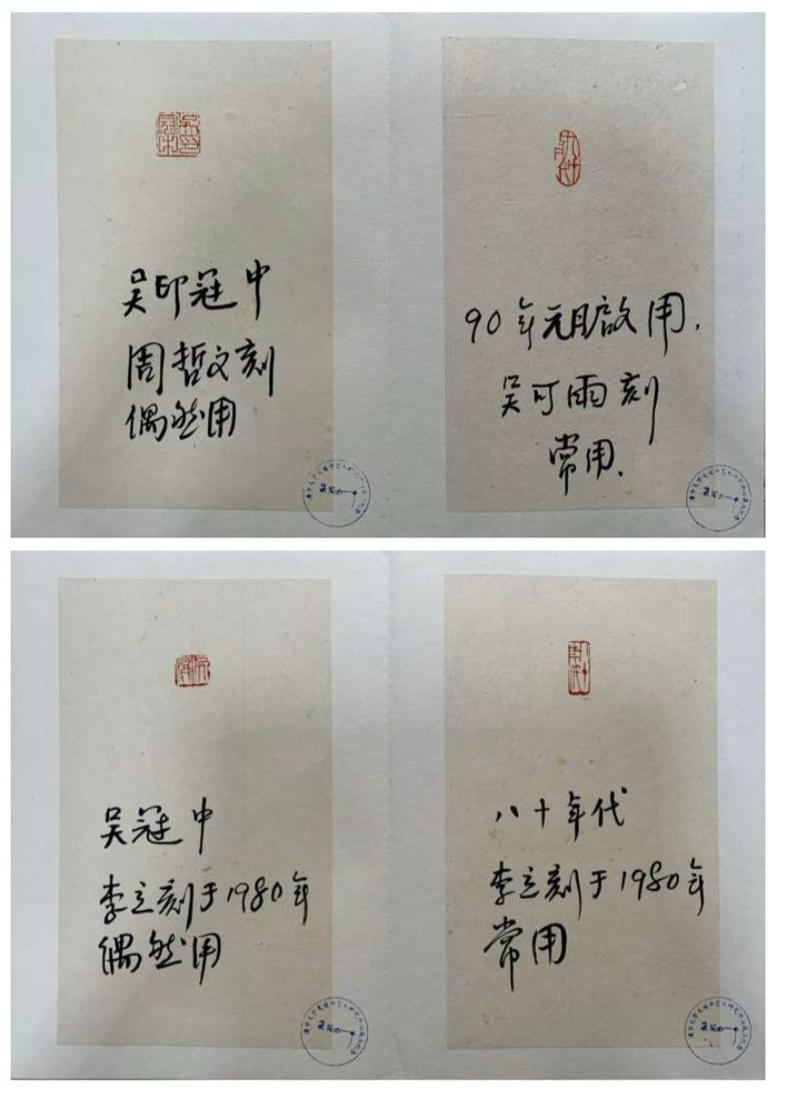 吴印冠中
周哲文刻
偶然用
90年元旦啟用.
吴可雨刻
常用.
吴冠中
李立刻于1980年
偶然用
八十年代
李立刻于1980年
常用